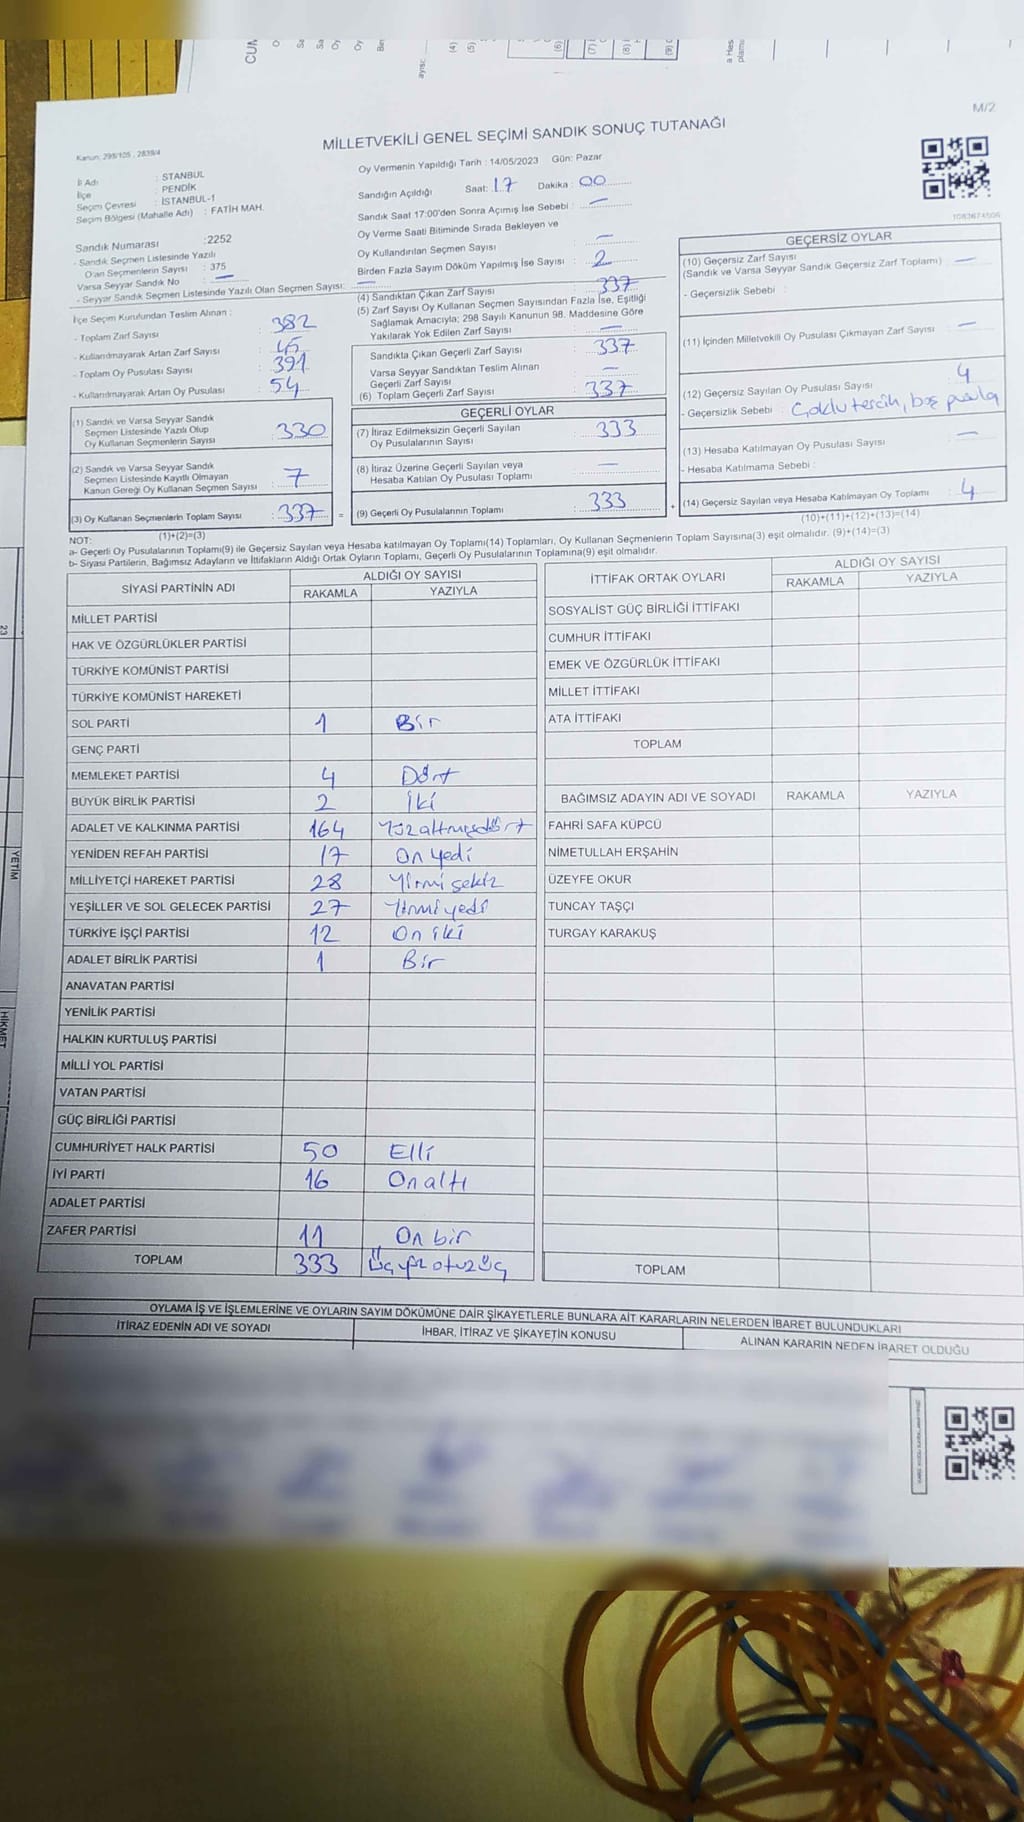 CUM
M/2
MİLLETVEKİLİ GENEL SEÇİMİ SANDIK SONUÇ TUTANAĞI
Kanun: 298/105 , 2839/4
İl Adı : STANBUL
İlçe : PENDİK
Seçim Çevresi : İSTANBUL-1
Seçim Bölgesi (Mahalle Adı) : FATİH MAH.
Sandık Numarası :2252
- Sandık Seçmen Listesinde Yazılı
Olan Seçmenlerin Sayısı : 375
Varsa Seyyar Sandık No : —
- Seyyar Sandık Seçmen Listesinde Yazılı Olan Seçmen Sayısı: —
İlçe Seçim Kurulundan Teslim Alınan :
- Toplam Zarf Sayısı : 382
- Kullanılmayarak Artan Zarf Sayısı : 45
- Toplam Oy Pusulası Sayısı : 391
- Kullanılmayarak Artan Oy Pusulası : 54
(1) Sandık ve Varsa Seyyar Sandık
Seçmen Listesinde Yazılı Olup
Oy Kullanan Seçmenlerin Sayısı : 330
(2) Sandık ve Varsa Seyyar Sandık
Seçmen Listesinde Kayıtlı Olmayan
Kanun Gereği Oy Kullanan Seçmen Sayısı : 7
(3) Oy Kullanan Seçmenlerin Toplam Sayısı : 337 =
(1)+(2)=(3)
Oy Vermenin Yapıldığı Tarih : 14/05/2023 Gün: Pazar
Sandığın Açıldığı Saat: 17 Dakika : 00
Sandık Saat 17:00'den Sonra Açımış İse Sebebi : —
Oy Verme Saati Bitiminde Sırada Bekleyen ve
Oy Kullandırılan Seçmen Sayısı : —
Birden Fazla Sayım Döküm Yapılmış İse Sayısı : 2
(4) Sandıktan Çıkan Zarf Sayısı : 337
(5) Zarf Sayısı Oy Kullanan Seçmen Sayısından Fazla İse, Eşitliği
Sağlamak Amacıyla; 298 Sayılı Kanunun 98. Maddesine Göre
Yakılarak Yok Edilen Zarf Sayısı : —
Sandıkta Çıkan Geçerli Zarf Sayısı : 337
Varsa Seyyar Sandıktan Teslim Alınan
Geçerli Zarf Sayısı : —
(6) Toplam Geçerli Zarf Sayısı : 337
GEÇERLİ OYLAR
(7) İtiraz Edilmeksizin Geçerli Sayılan
Oy Pusulalarının Sayısı : 333
(8) İtiraz Üzerine Geçerli Sayılan veya
Hesaba Katılan Oy Pusulası Toplamı : —
(9) Geçerli Oy Pusulalarının Toplamı : 333 +
1083674506
GEÇERSİZ OYLAR
(10) Geçersiz Zarf Sayısı
(Sandık ve Varsa Seyyar Sandık Geçersiz Zarf Toplamı) : —
- Geçersizlik Sebebi :
(11) İçinden Milletvekili Oy Pusulası Çıkmayan Zarf Sayısı : —
(12) Geçersiz Sayılan Oy Pusulası Sayısı : 4
- Geçersizlik Sebebi : Çoklu tercih, boş pusula
(13) Hesaba Katılmayan Oy Pusulası Sayısı : —
- Hesaba Katılmama Sebebi :
(14) Geçersiz Sayılan veya Hesaba Katılmayan Oy Toplamı : 4
(10)+(11)+(12)+(13)=(14)
NOT:
a- Geçerli Oy Pusulalarının Toplamı(9) ile Geçersiz Sayılan veya Hesaba katılmayan Oy Toplamı(14) Toplamları, Oy Kullanan Seçmenlerin Toplam Sayısına(3) eşit olmalıdır. (9)+(14)=(3)
b- Siyasi Partilerin, Bağımsız Adayların ve İttifakların Aldığı Ortak Oyların Toplamı, Geçerli Oy Pusulalarının Toplamına(9) eşit olmalıdır.
SİYASİ PARTİNİN ADI ALDIĞI OY SAYISI
RAKAMLA YAZIYLA
MİLLET PARTİSİ
HAK VE ÖZGÜRLÜKLER PARTİSİ
TÜRKİYE KOMÜNİST PARTİSİ
TÜRKİYE KOMÜNİST HAREKETİ
SOL PARTİ 1 Bir
GENÇ PARTİ
MEMLEKET PARTİSİ 4 Dört
BÜYÜK BİRLİK PARTİSİ 2 İki
ADALET VE KALKINMA PARTİSİ 164 Yüzaltmışdört
YENİDEN REFAH PARTİSİ 17 On yedi
MİLLİYETÇİ HAREKET PARTİSİ 28 Yirmi sekiz
YEŞİLLER VE SOL GELECEK PARTİSİ 27 Yirmi yedi
TÜRKİYE İŞÇİ PARTİSİ 12 On iki
ADALET BİRLİK PARTİSİ 1 Bir
ANAVATAN PARTİSİ
YENİLİK PARTİSİ
HALKIN KURTULUŞ PARTİSİ
MİLLİ YOL PARTİSİ
VATAN PARTİSİ
GÜÇ BİRLİĞİ PARTİSİ
CUMHURİYET HALK PARTİSİ 50 Elli
İYİ PARTİ 16 On altı
ADALET PARTİSİ
ZAFER PARTİSİ 11 On bir
TOPLAM 333 Üçyüz otuzüç
İTTİFAK ORTAK OYLARI ALDIĞI OY SAYISI
RAKAMLA YAZIYLA
SOSYALİST GÜÇ BİRLİĞİ İTTİFAKI
CUMHUR İTTİFAKI
EMEK VE ÖZGÜRLÜK İTTİFAKI
MİLLET İTTİFAKI
ATA İTTİFAKI
TOPLAM
BAĞIMSIZ ADAYIN ADI VE SOYADI RAKAMLA YAZIYLA
FAHRİ SAFA KÜPCÜ
NİMETULLAH ERŞAHİN
ÜZEYFE OKUR
TUNCAY TAŞÇI
TURGAY KARAKUŞ
TOPLAM
OYLAMA İŞ VE İŞLEMLERİNE VE OYLARIN SAYIM DÖKÜMÜNE DAİR ŞİKAYETLERLE BUNLARA AİT KARARLARIN NELERDEN İBARET BULUNDUKLARI
İTİRAZ EDENİN ADI VE SOYADI İHBAR, İTİRAZ VE ŞİKAYETİN KONUSU ALINAN KARARIN NEDEN İBARET OLDUĞU
23
YETİM
HİKMET